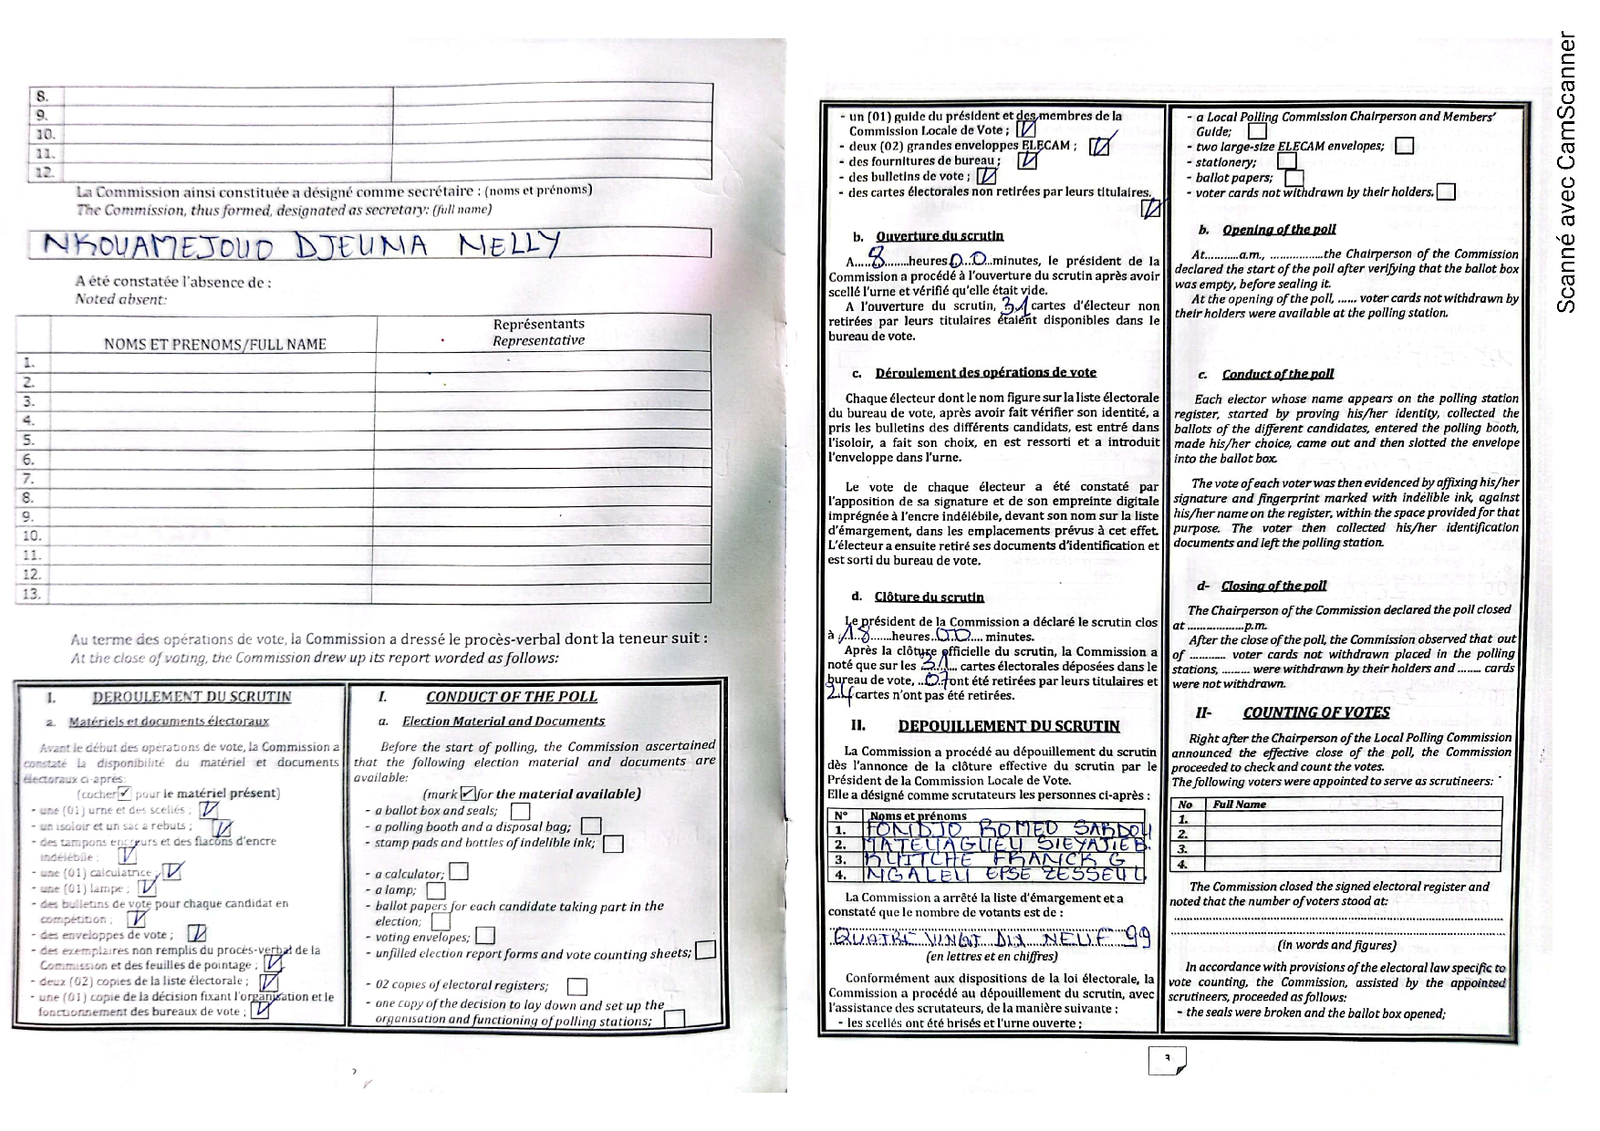 8.
9.
10.
11.
12.
La Commission ainsi constituée a désigné comme secrétaire : (noms et prénoms)
The Commission, thus formed, designated as secretary: (full name)
NKOUAMEJOUO DJEUNA NELLY
A été constatée l'absence de :
Noted absent:
NOMS ET PRENOMS/FULL NAME
Représentants
Representative
1.
2.
3.
4.
5.
6.
7.
8.
9.
10.
11.
12.
13.
Au terme des opérations de vote, la Commission a dressé le procès-verbal dont la teneur suit :
At the close of voting, the Commission drew up its report worded as follows:
I. DEROULEMENT DU SCRUTIN
a. Matériels et documents électoraux
Avant le début des opérations de vote, la Commission a
constaté la disponibilité du matériel et documents
électoraux ci-après:
(cocher ✓ pour le matériel présent)
- une (01) urne et des scellés ;
- un isoloir et un sac à rebuts ;
- des tampons encreurs et des flacons d'encre
indélébile ;
- une (01) calculatrice ;
- une (01) lampe ;
- des bulletins de vote pour chaque candidat en
compétition ;
- des enveloppes de vote ;
- des exemplaires non remplis du procès-verbal de la
Commission et des feuilles de pointage ;
- deux (02) copies de la liste électorale ;
- une (01) copie de la décision fixant l'organisation et le
fonctionnement des bureaux de vote ;
I. CONDUCT OF THE POLL
a. Election Material and Documents
Before the start of polling, the Commission ascertained
that the following election material and documents are
available:
(mark ✓ for the material available)
- a ballot box and seals;
- a polling booth and a disposal bag;
- stamp pads and bottles of indelible ink;
- a calculator;
- a lamp;
- ballot papers for each candidate taking part in the
election;
- voting envelopes;
- unfilled election report forms and vote counting sheets;
- 02 copies of electoral registers;
- one copy of the decision to lay down and set up the
organisation and functioning of polling stations;
- un (01) guide du président et des membres de la
Commission Locale de Vote ;
- deux (02) grandes enveloppes ELECAM ;
- des fournitures de bureau ;
- des bulletins de vote ;
- des cartes électorales non retirées par leurs titulaires.
b. Ouverture du scrutin
A.....8.......heures 00...minutes, le président de la
Commission a procédé à l'ouverture du scrutin après avoir
scellé l'urne et vérifié qu'elle était vide.
A l'ouverture du scrutin, 31 cartes d'électeur non
retirées par leurs titulaires étaient disponibles dans le
bureau de vote.
c. Déroulement des opérations de vote
Chaque électeur dont le nom figure sur la liste électorale
du bureau de vote, après avoir fait vérifier son identité, a
pris les bulletins des différents candidats, est entré dans
l'isoloir, a fait son choix, en est ressorti et a introduit
l'enveloppe dans l'urne.
Le vote de chaque électeur a été constaté par
l'apposition de sa signature et de son empreinte digitale
imprégnée à l'encre indélébile, devant son nom sur la liste
d'émargement, dans les emplacements prévus à cet effet.
L'électeur a ensuite retiré ses documents d'identification et
est sorti du bureau de vote.
d. Clôture du scrutin
Le président de la Commission a déclaré le scrutin clos
à .18......heures..00.... minutes.
Après la clôture officielle du scrutin, la Commission a
noté que sur les ..31.... cartes électorales déposées dans le
bureau de vote, ..07 ont été retirées par leurs titulaires et
24 cartes n'ont pas été retirées.
II. DEPOUILLEMENT DU SCRUTIN
La Commission a procédé au dépouillement du scrutin
dès l'annonce de la clôture effective du scrutin par le
Président de la Commission Locale de Vote.
Elle a désigné comme scrutateurs les personnes ci-après :
N° Noms et prénoms
1. FONDJO ROMEO SARDOU
2.
3. KUITCHE FRANCK G
4. NGALEU EPSE ZESSEUL
La Commission a arrêté la liste d'émargement et a
constaté que le nombre de votants est de :
QUATRE VINGT DIX NEUF 99
(en lettres et en chiffres)
Conformément aux dispositions de la loi électorale, la
Commission a procédé au dépouillement du scrutin, avec
l'assistance des scrutateurs, de la manière suivante :
- les scellés ont été brisés et l'urne ouverte ;
- a Local Polling Commission Chairperson and Members'
Guide;
- two large-size ELECAM envelopes;
- stationery;
- ballot papers;
- voter cards not withdrawn by their holders.
b. Opening of the poll
At..........a.m., ................the Chairperson of the Commission
declared the start of the poll after verifying that the ballot box
was empty, before sealing it.
At the opening of the poll, ...... voter cards not withdrawn by
their holders were available at the polling station.
c. Conduct of the poll
Each elector whose name appears on the polling station
register, started by proving his/her identity, collected the
ballots of the different candidates, entered the polling booth,
made his/her choice, came out and then slotted the envelope
into the ballot box.
The vote of each voter was then evidenced by affixing his/her
signature and fingerprint marked with indelible ink, against
his/her name on the register, within the space provided for that
purpose. The voter then collected his/her identification
documents and left the polling station.
d- Closing of the poll
The Chairperson of the Commission declared the poll closed
at ..................p.m.
After the close of the poll, the Commission observed that out
of ........... voter cards not withdrawn placed in the polling
stations, ......... were withdrawn by their holders and ........ cards
were not withdrawn.
II- COUNTING OF VOTES
Right after the Chairperson of the Local Polling Commission
announced the effective close of the poll, the Commission
proceeded to check and count the votes.
The following voters were appointed to serve as scrutineers:
No Full Name
1.
2.
3.
4.
The Commission closed the signed electoral register and
noted that the number of voters stood at:
(in words and figures)
In accordance with provisions of the electoral law specific to
vote counting, the Commission, assisted by the appointed
scrutineers, proceeded as follows:
- the seals were broken and the ballot box opened;
3
Scanné avec CamScanner